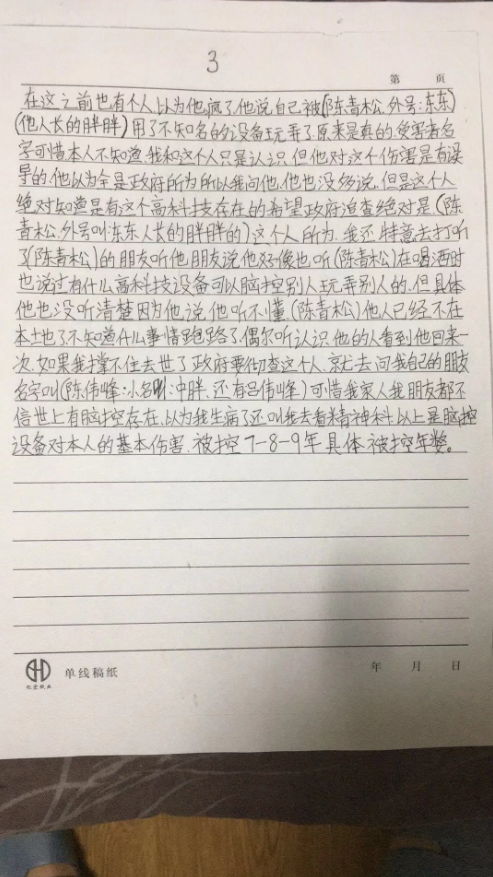 3
第 页
在这之前也有个人以为他疯了他说自己被(陈青松.外号:东东)
(他人长的胖胖)用了不知名的设备玩弄了原来是真的.受害者名
字可惜本人不知道.我和这个人只是认识.但他对这个伤害是有误
导的.他以为全是政府所为所以我问他.他也没够说。但是这个人
绝对知道是有这个高科技存在的希望政府追查绝对是(陈
青松.外号叫:东东人长的胖胖的)这个人所为.我还特意去打听
了(陈青松)的朋友听他朋友说他好像也听(陈青松)在喝酒时
也说过有什么高科技设备可以脑控别人玩弄别人的.但具体
他也没听清楚因为他说他听不懂(陈青松)他人已经不在
本地了不知道什么事情跑路了.偶尔听认识他的人看到他回来一
次.如果我撑不住去世了政府要彻查这个人.就去问我自己的朋友
名字叫(陈伟峰:小名叫:中胖.还有吕伟峰)可惜我家人我朋友都不
信世上有脑控存在.以为我生病了还叫我去看精神科.以上是脑控
设备对本人的基本伤害.被控7-8-9年具体被控年数。
单线稿纸
年 月 日